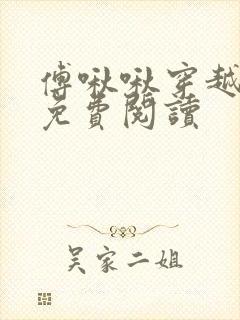 傅啾啾穿越
免費閱讀
吳家二姐